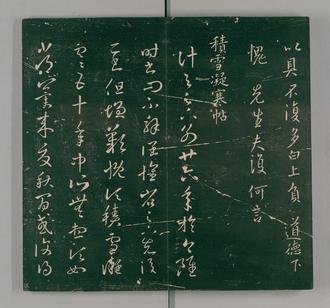 以具示復多白上負 道德下
愧 先生夫復何言
積雪凝寒帖
計與足下別廿六年於今雖
時書問不解闊懷省足下先後
二書但增歎慨頃積雪凝
寒五十年中所無想頃如
常冀來夏秋間或復得